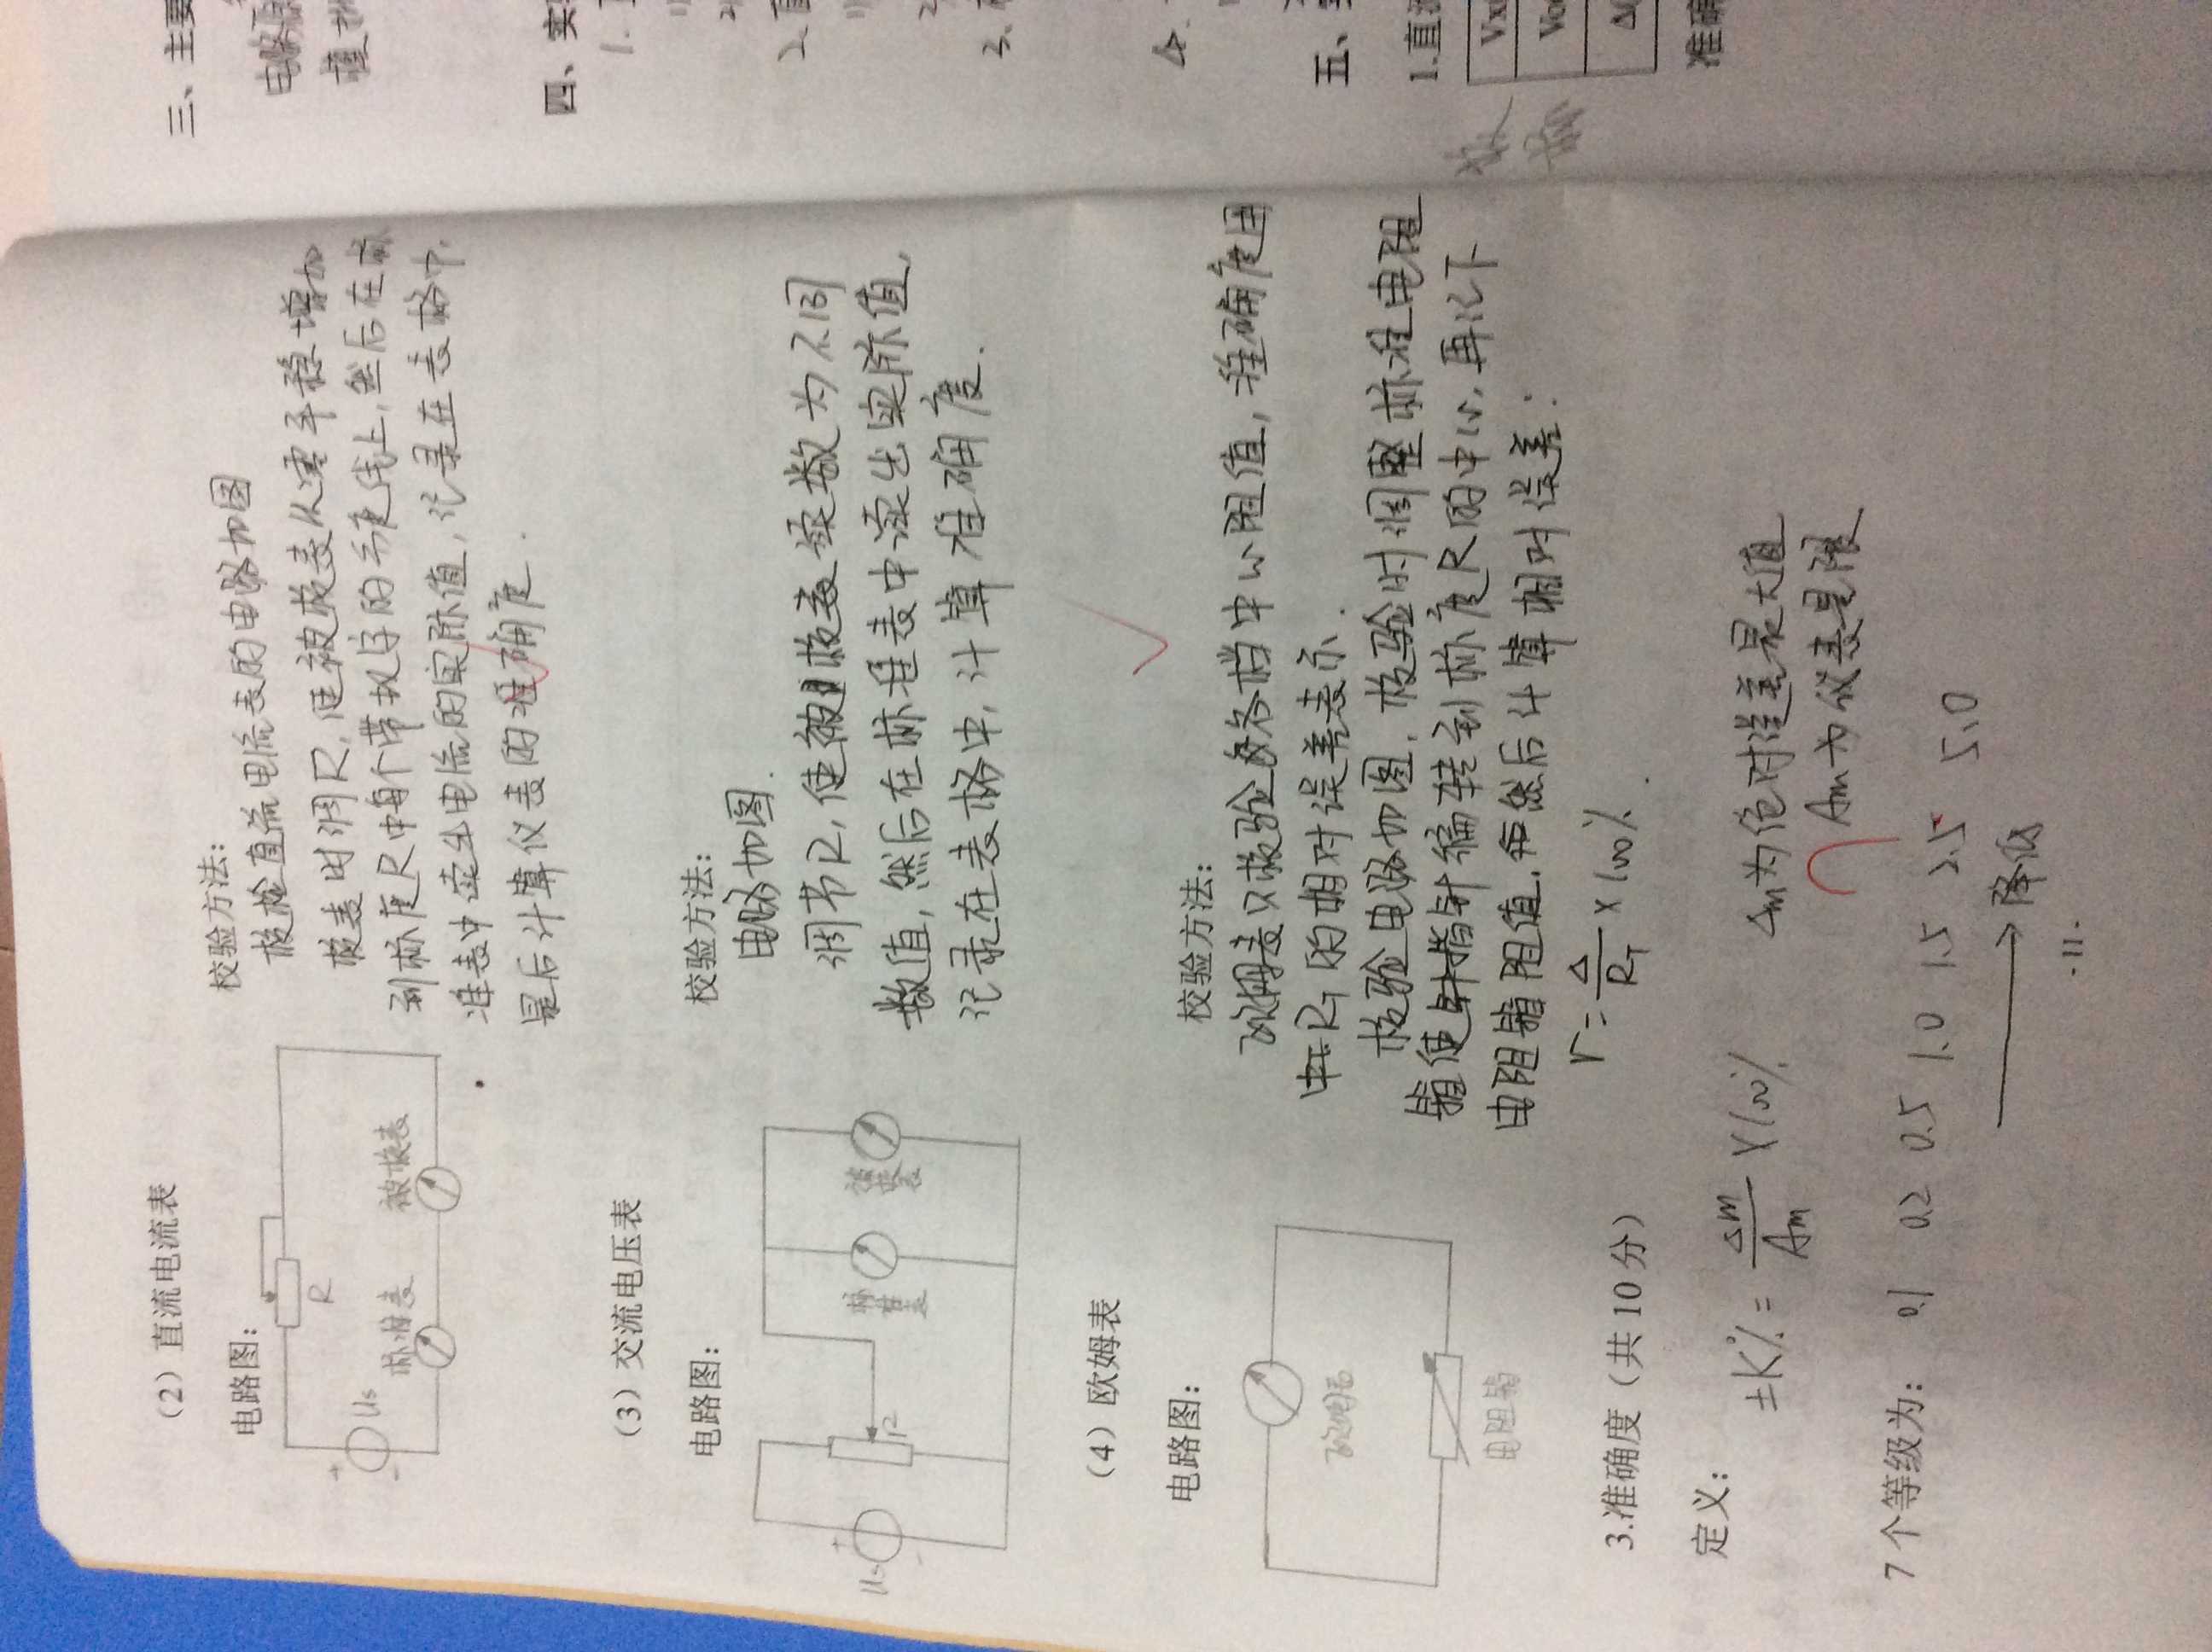 （2）直流电流表
电路图：
R
+
Us
-
标准表
被校表
校验方法：
校检直流电流表的电路如图
校表时调R，使被校表从零平稳增加
到标度尺中每个带数字的分度线上，然后在标
准表中读出电流的实际值，记录在表格中，
最后计算仪表的准确度．
（3）交流电压表
电路图：
+
Us
-
R
标准表
被校表
校验方法：
电路如图．
调节R，使被校表读数为不同
数值，然后在标准表中读出实际值，
记录在表格中，计算准确度．
（4）欧姆表
电路图：
欧姆表
电阻箱
校验方法：
欧姆表只校验各档中心阻值，准确度用
中心RT的相对误差表示．
校验电路如图，校验时调整标准电阻
箱使指针偏转到标度尺的中心，再记下
电阻箱阻值，然后计算相对误差：
r=Δ/RT×100%．
3.准确度（共10分）
定义：
±K%=Δm/Am×100%
Δm为绝对误差最大值
Am为仪表量限
7个等级为：0.1 0.2 0.5 1.0 1.5 2.5 5.0
→降低
-11-
三、主要
电路原
模拟
四、实
1.
2.直
3.
4.
五、实
1.直流
被
标
Vx
Vo
Δ
准确